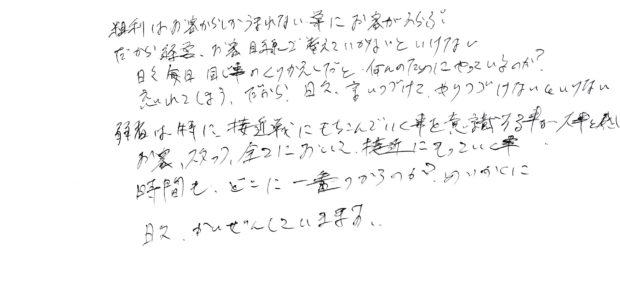 粗利はお客からしかうまれない 常にお客がみらる?
だから経営、お客目線で考えていかないといけない
日々毎日同じ事のくりかえしだと、何んのためにやっているのか?
忘れてしまう、だから、日々、言いつづけて、やりつづけないといけない
は特に、接近戦にもちこんでいく事を意識する事が大事と感じ
お客、スタッフ、全てにおいて、接近にもっていく事
時間も、どこに一番つかうのか?めいかくに
日々、かいぜんしていきます。